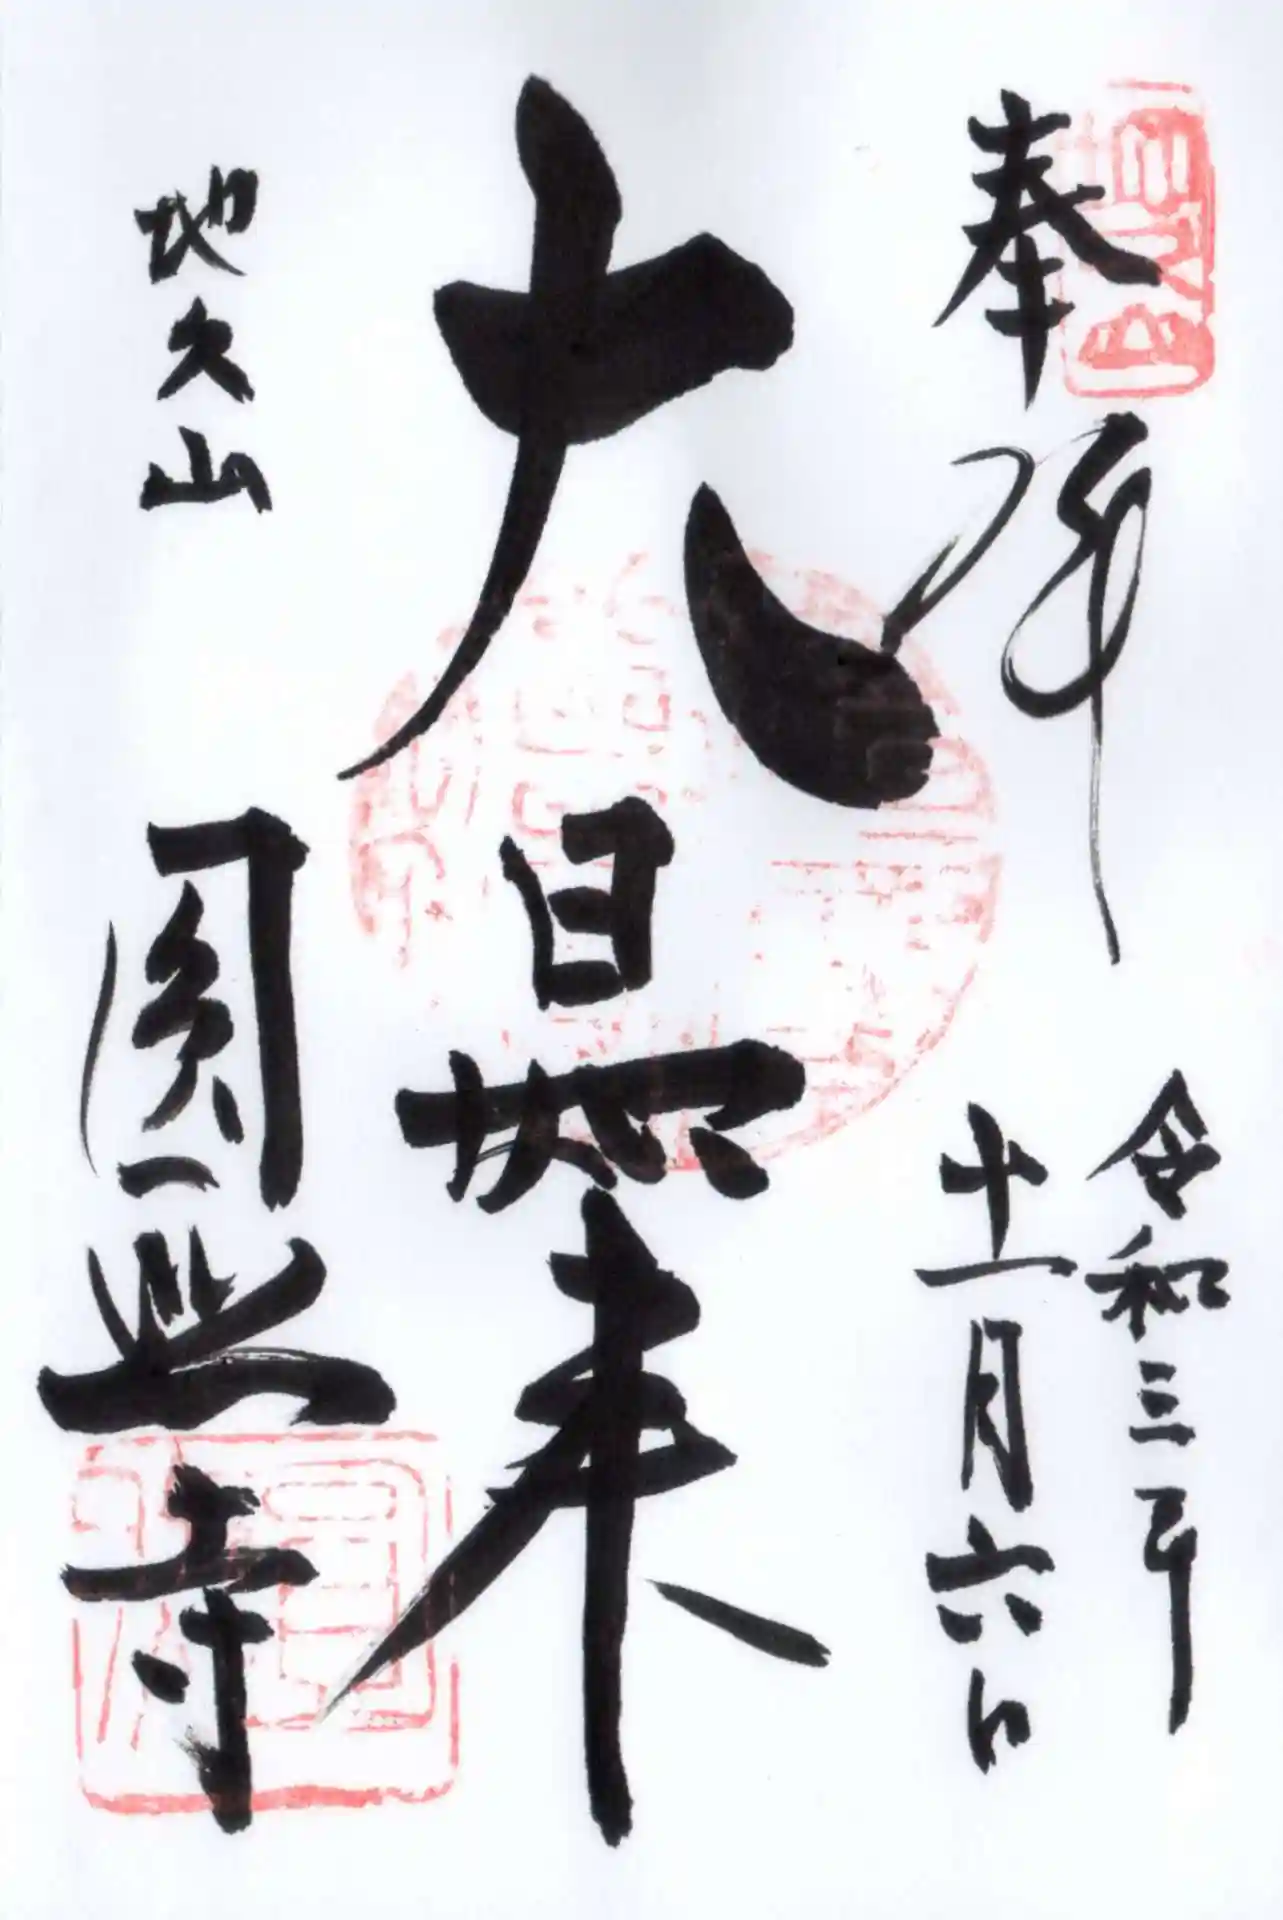 奉拝
令和三年
十一月六日
大日如来
地久山
圓照寺